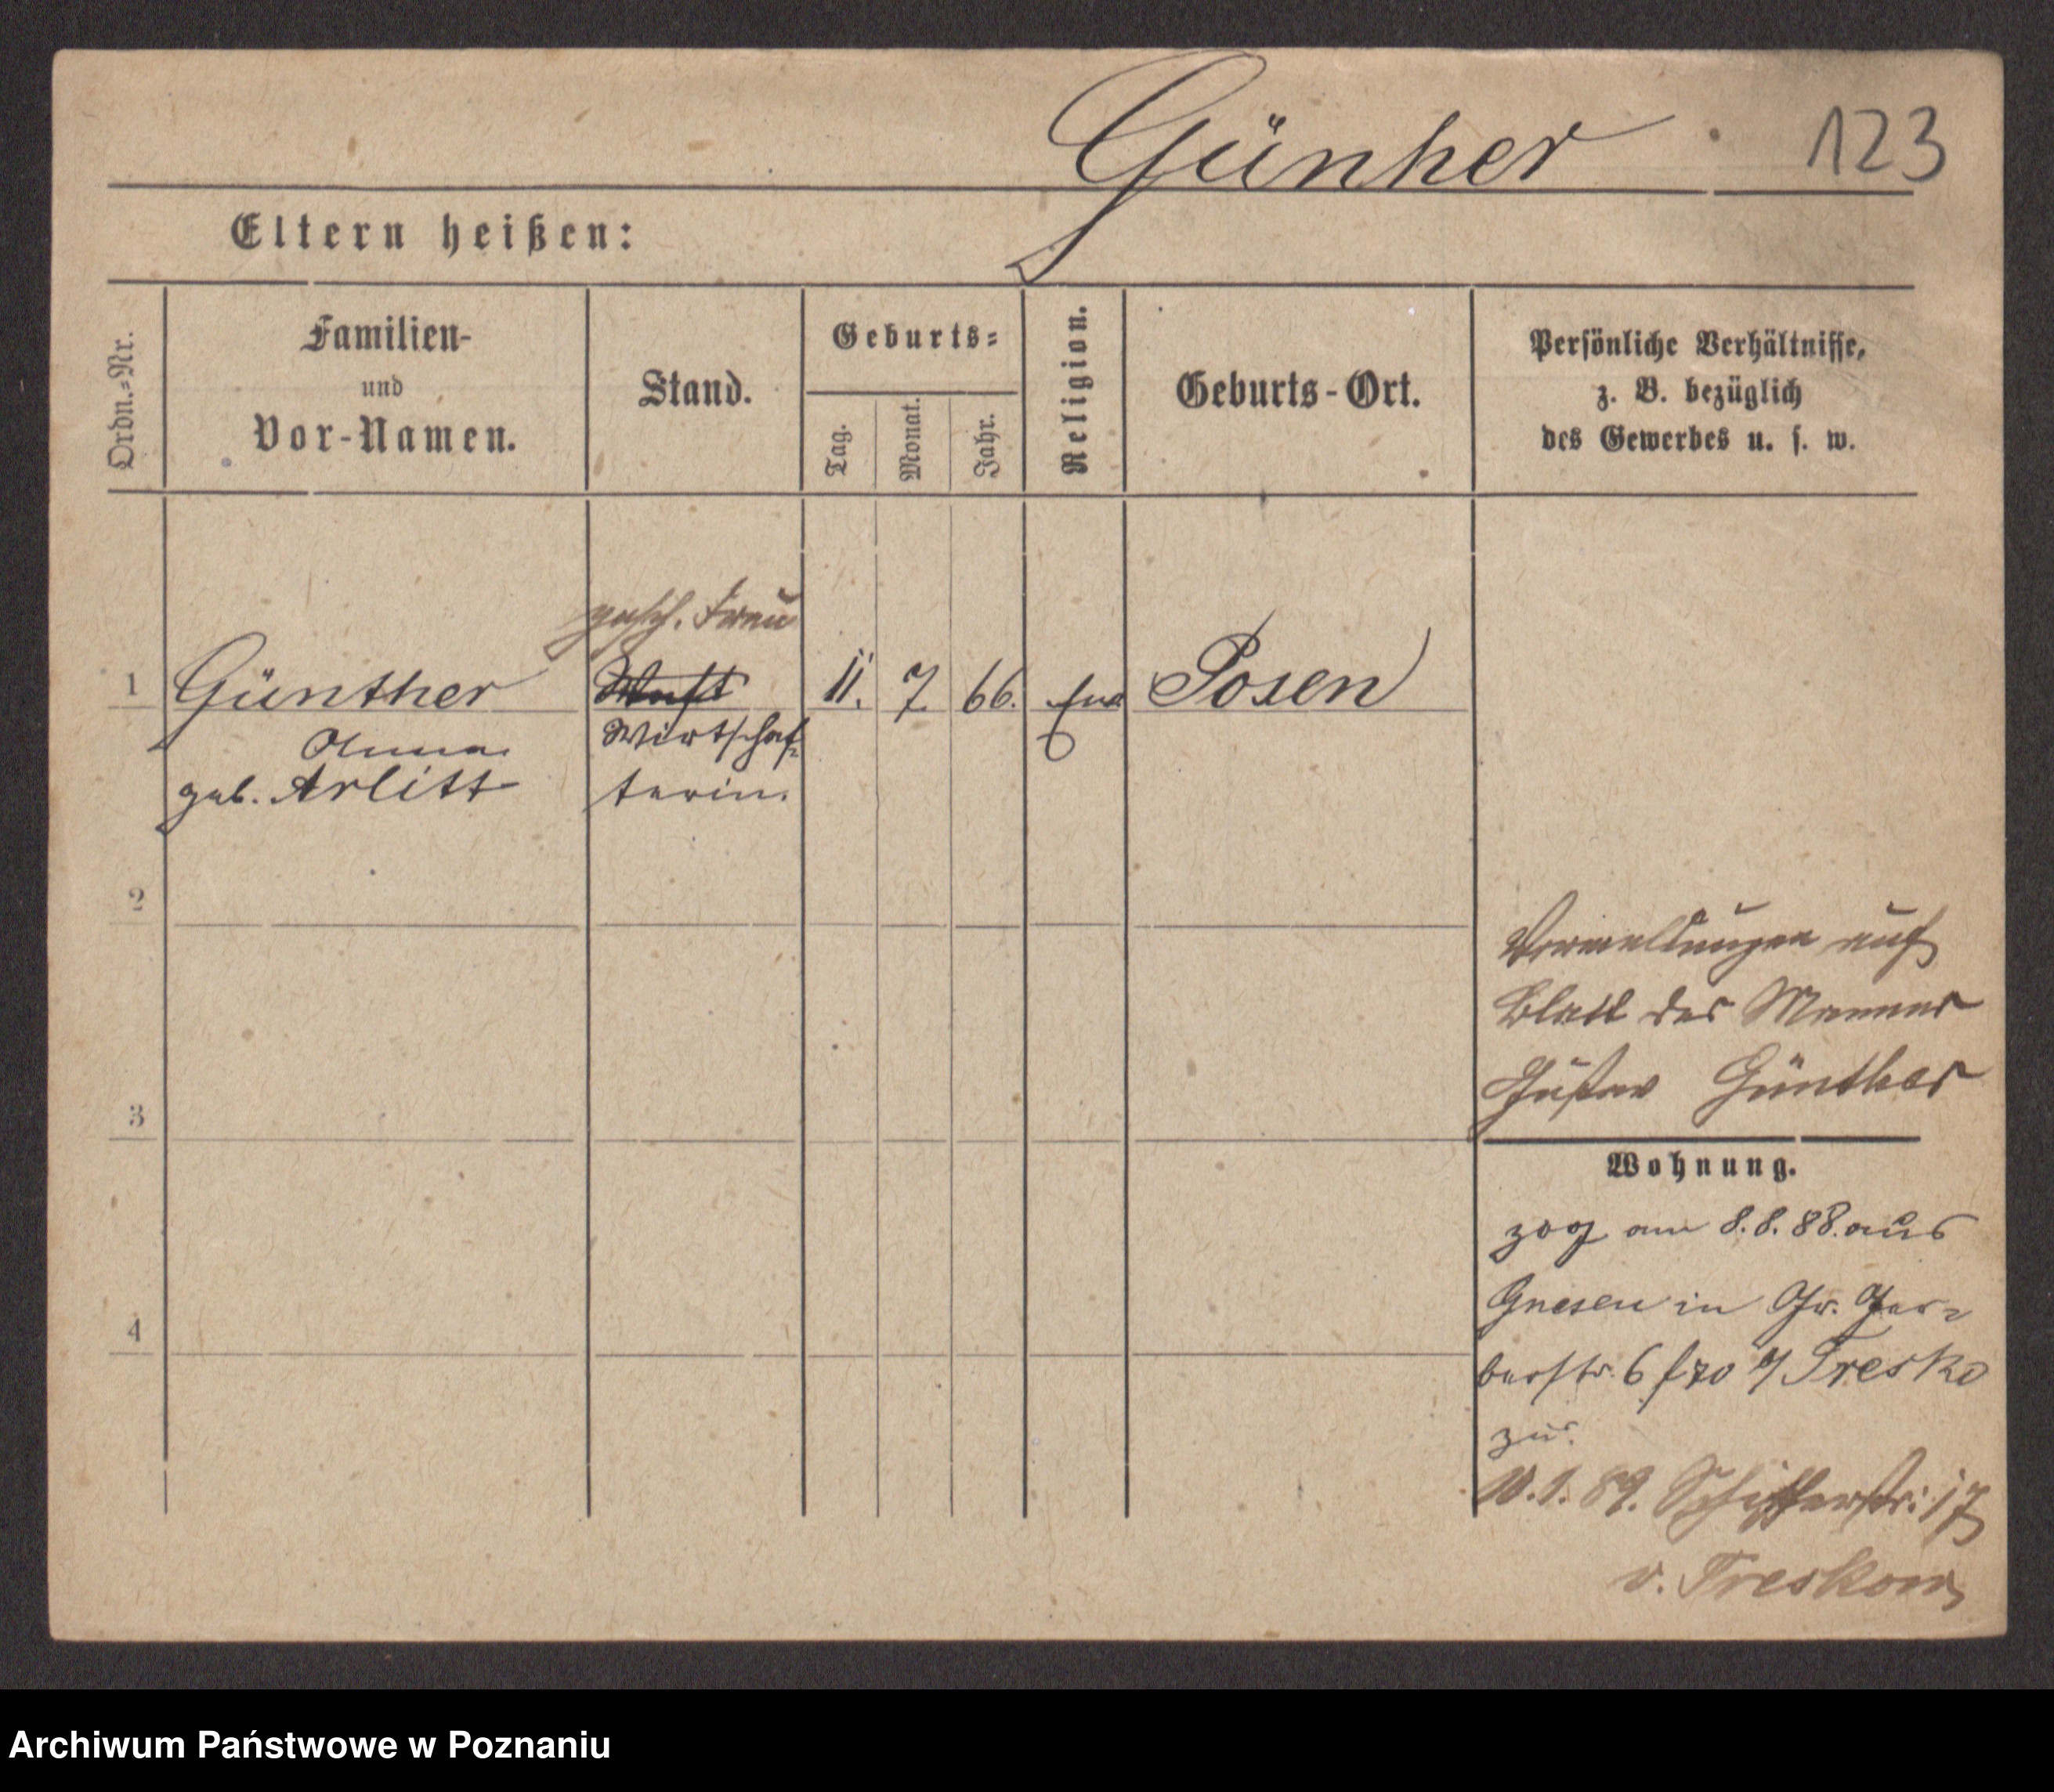 Günher 123
Eltern heißen:
Ordn.-Nr.
Familien-
und
Vor-Namen.
Stand.
Geburts-
Tag.
Monat.
Jahr.
Religion.
Geburts-Ort.
Persönliche Verhältnisse,
z. B. bezüglich
des Gewerbes u. s. w.
gesch. Frau
1 Günther 11. 7. 66. Posen
Anna
geb. Arlitt
Wirtschaf-
terin.
2
3
4
Vormeldungen auf
Blatt des Mannes
Gustav Günther
Wohnung.
zog am 8.8.88. aus
Gnesen in Gr. Ger-
berstr. 6 Tresko
zu.
10.1.89. Schifferstr. 17
v. Treskow
Archiwum Państwowe w Poznaniu